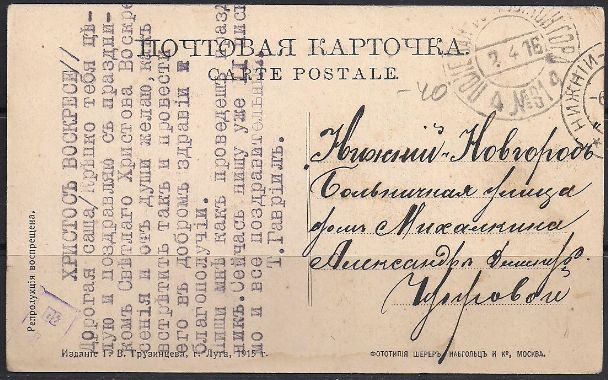 ПОЧТОВАЯ КАРТОЧКА.
CARTE POSTALE.
ХРИСТОСЪ ВОСКРЕСЕ//
Дорогая саша/Крѣпко тебя цѣ-
лую и поздравляю съ праздни-
комъ Свѣтлаго Христова Воскре
сенія и отъ души желаю, какъ
встрѣтить такъ и провести
его въ добромъ здравіи и
благополучіи.
Пиши мнѣ какъ проведешь
никъ. Сейчась пишу уже 11
мо и все поздравительныя.
Т. Гавріилъ.
2 4 16
4 № 31 4
НИЖНІЙ-
-40
Нижній-Новгородъ
Больничная улица
домъ Михалкина
Александрѣ
Репродукція воспрещена.
Изданіе Г. В. Грузинцева, г. Луга, 1915 г.
ФОТОТИПІЯ ШЕРЕРЪ, НАБГОЛЬЦЪ И К°, МОСКВА.